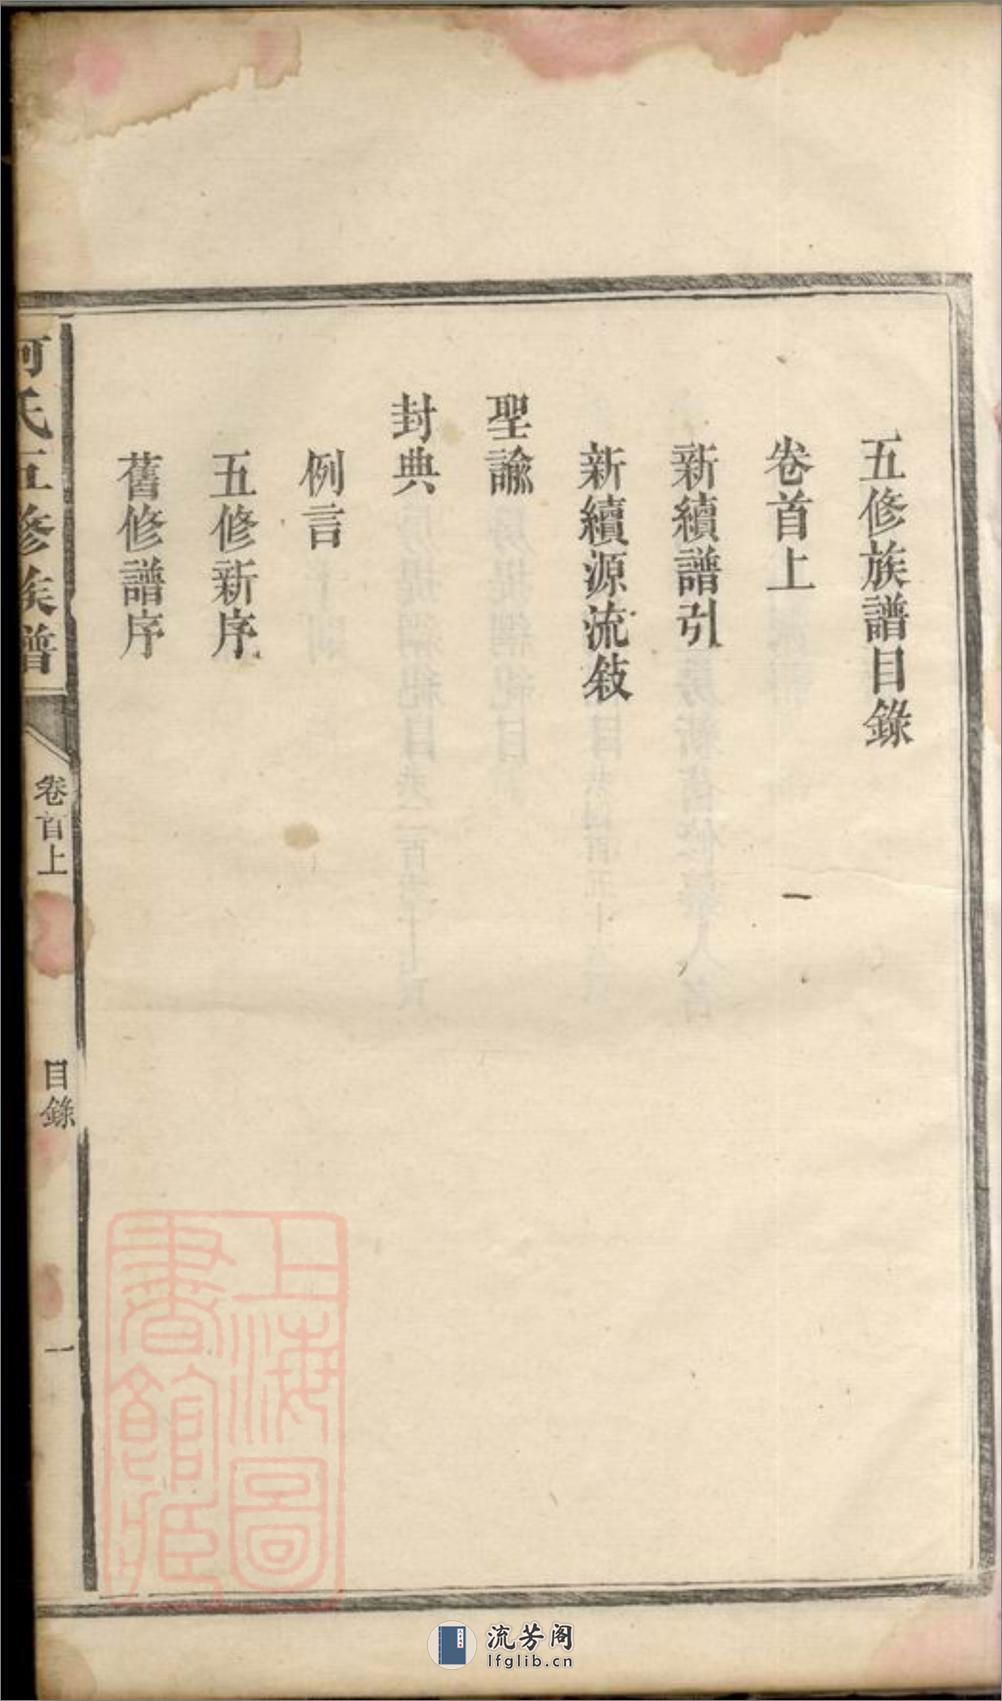 五修族譜目錄
卷首上
新續譜引
新續源流敍
聖諭
封典
例言
五修新序
舊修譜序
氏五修族譜
卷首上
目錄
一
上海圖
書館藏
流芳阁
lfglib.cn